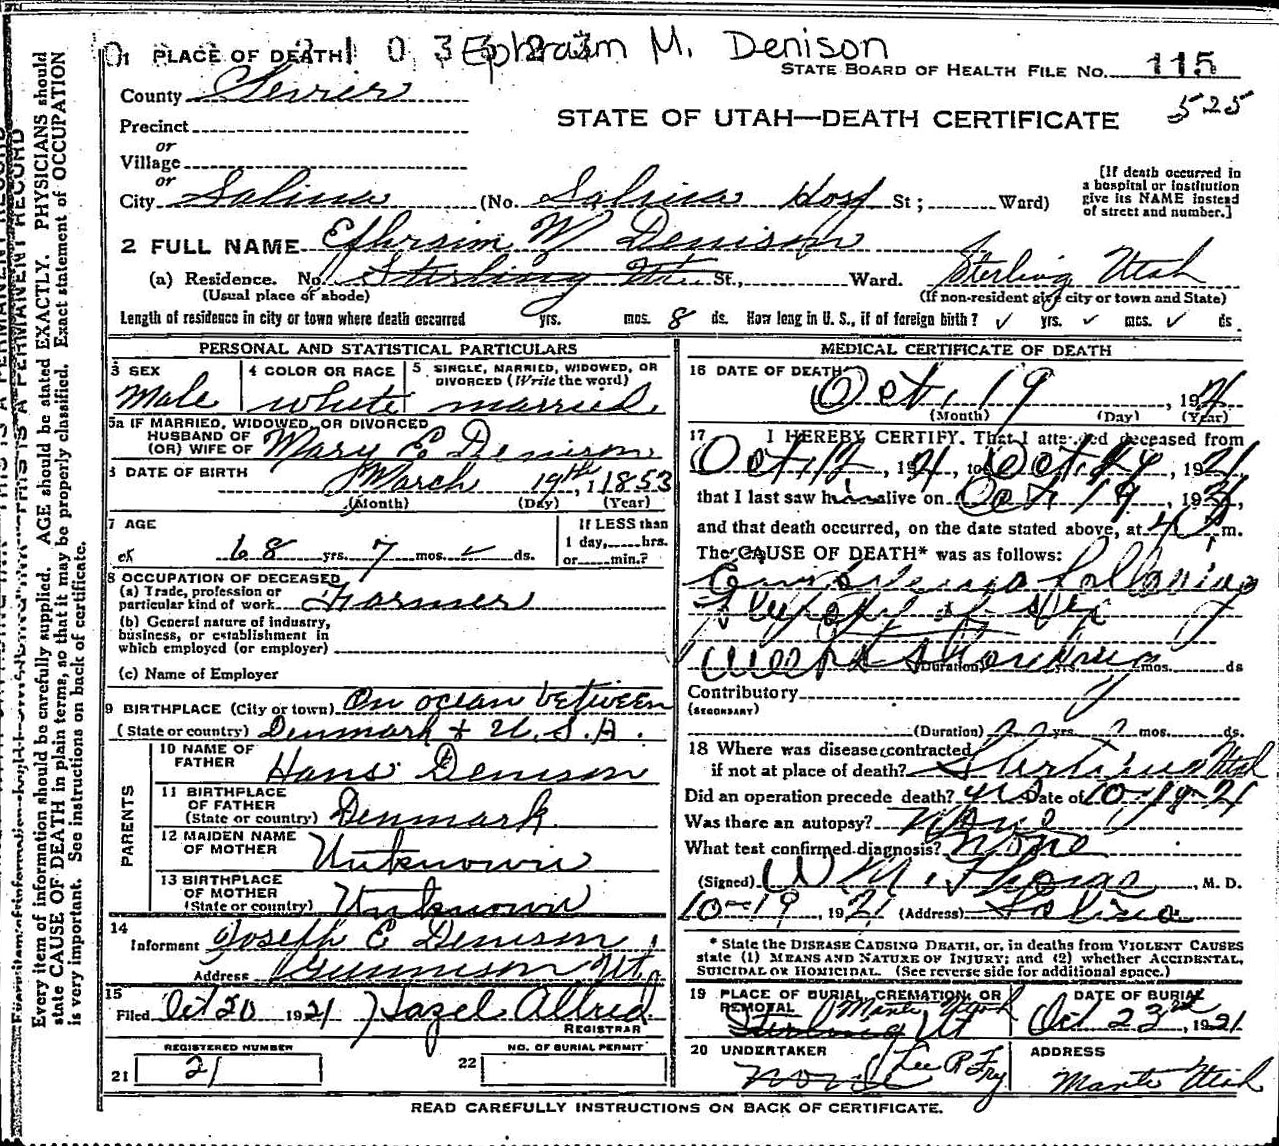 1 PLACE OF DEATH Ephraim M. Denison
STATE BOARD OF HEALTH FILE NO. 115
525
County Sevier
STATE OF UTAH—DEATH CERTIFICATE
Precinct
or
Village
or
City Salina (No. Salina Hosp St; Ward)
[If death occurred in
a hospital or institution
give its NAME instead
of street and number.]
2 FULL NAME Ephraim M Denison
(a) Residence. No. Sterling Utah St., Ward. Sterling Utah
(Usual place of abode) (If non-resident give city or town and State)
Length of residence in city or town where death occurred yrs. mos. 8 ds. How long in U. S., if of foreign birth? ✓ yrs. ✓ mos. ✓ ds.
PERSONAL AND STATISTICAL PARTICULARS
3 SEX
Male
4 COLOR OR RACE
white
5 SINGLE, MARRIED, WIDOWED, OR
DIVORCED (Write the word)
married.
5a IF MARRIED, WIDOWED, OR DIVORCED
HUSBAND OF
(OR) WIFE OF Mary E Denison
6 DATE OF BIRTH
March 19th, 1853
(Month) (Day) (Year)
7 AGE
68 yrs. 7 mos. ✓ ds.
If LESS than
1 day, hrs.
or min.?
8 OCCUPATION OF DECEASED
(a) Trade, profession or
particular kind of work Farmer
(b) General nature of industry,
business, or establishment in
which employed (or employer)
(c) Name of Employer
9 BIRTHPLACE (City or town) On ocean between
(State or country) Denmark & U.S.A.
PARENTS
10 NAME OF
FATHER Hans Denison
11 BIRTHPLACE
OF FATHER
(State or country) Denmark
12 MAIDEN NAME
OF MOTHER Unknown
13 BIRTHPLACE
OF MOTHER
(State or country) Unknown
14
Informant Joseph E Denison
Address Gunnison Ut.
15
Filed Oct 20 1921 Hazel Allred
REGISTRAR
REGISTERED NUMBER
21 21
NO. OF BURIAL PERMIT
22
MEDICAL CERTIFICATE OF DEATH
16 DATE OF DEATH
Oct. 19, 1921
(Month) (Day) (Year)
17 I HEREBY CERTIFY. That I attended deceased from
Oct. 12, 1921, to Oct. 19, 1921
that I last saw him alive on Oct 19, 1921
and that death occurred, on the date stated above, at 4 P m.
The CAUSE OF DEATH* was as follows:
following
(Duration) yrs. mos. ds
Contributory
(SECONDARY)
(Duration) yrs. mos. ds.
18 Where was disease contracted
if not at place of death? Sterling Utah
Did an operation precede death? yes Date of 10-19-21
Was there an autopsy? None
What test confirmed diagnosis? None
(Signed) W M. Thomas, M. D.
10-19, 1921 (Address) Salina
* State the DISEASE CAUSING DEATH, or, in deaths from VIOLENT CAUSES
state (1) MEANS AND NATURE OF INJURY; and (2) whether ACCIDENTAL,
SUICIDAL OR HOMICIDAL. (See reverse side for additional space.)
19 PLACE OF BURIAL, CREMATION, OR
REMOVAL Manti Utah
Sterling Ut
DATE OF BURIAL
Oct 23rd, 1921
20 UNDERTAKER
none Lee R Fry
ADDRESS
Manti Utah
READ CAREFULLY INSTRUCTIONS ON BACK OF CERTIFICATE.
Every item of information should be carefully supplied. AGE should be stated EXACTLY. PHYSICIANS should
state CAUSE OF DEATH in plain terms, so that it may be properly classified. Exact statement of OCCUPATION
is very important. See instructions on back of certificate.